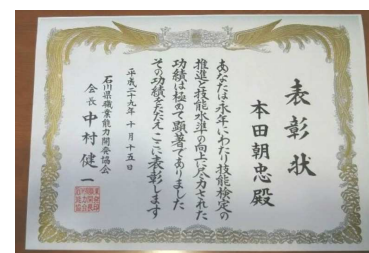 表彰状
本田朝忠殿
あなたは永年にわたり技能検定の
推進と技能水準の向上に尽力された
功績は極めて顕著でありました
その功績をたたえここに表彰します
平成二十九年十月十五日
石川県職業能力開発協会
会長中村健一